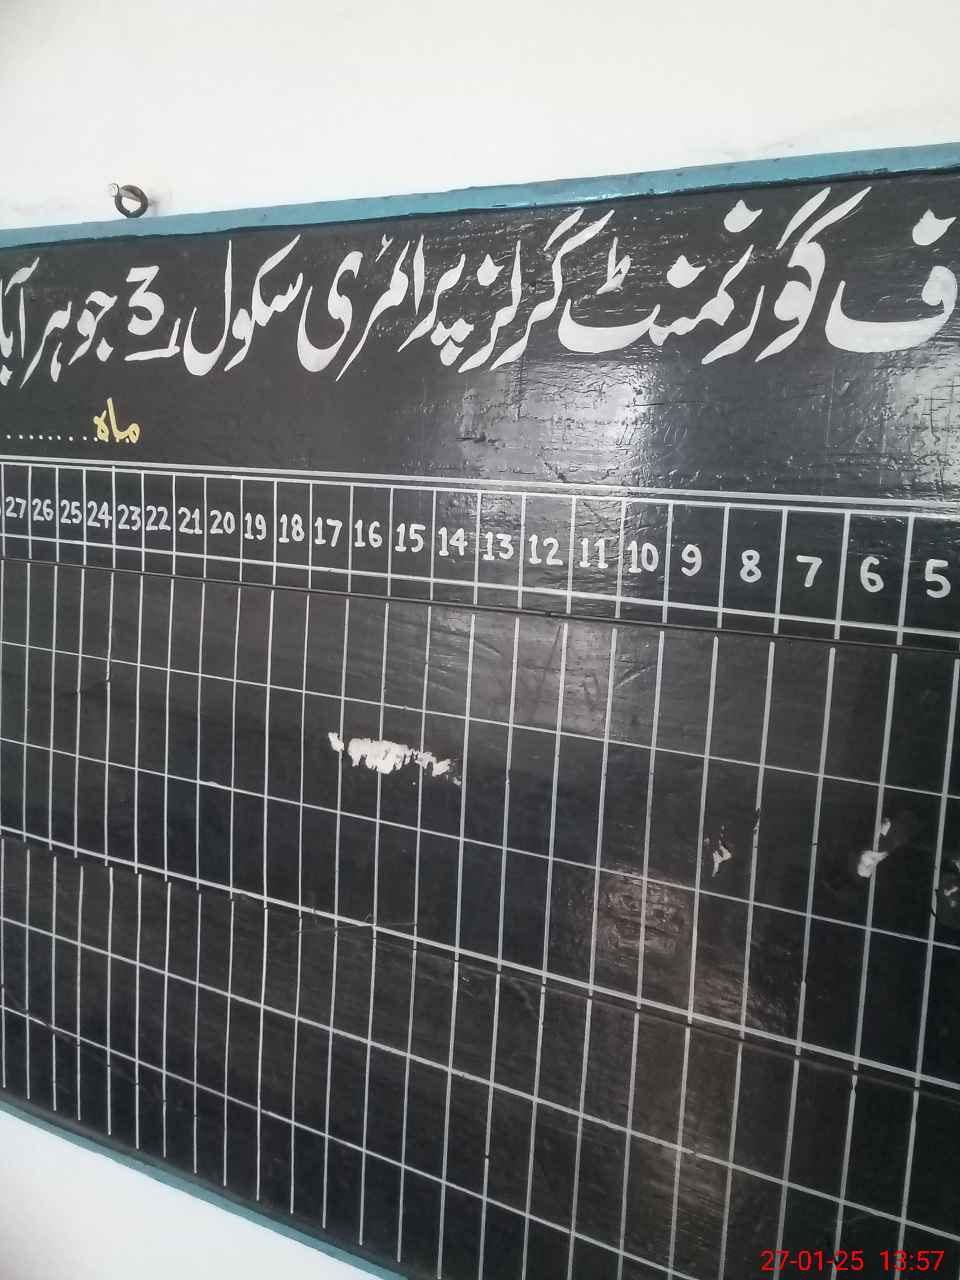 ف گورنمنٹ گرلز پرائمری سکول 3 جوہر آبا
ماہ ..........
5 6 7 8 9 10 11 12 13 14 15 16 17 18 19 20 21 22 23 24 25 26 27
27-01-25 13:57